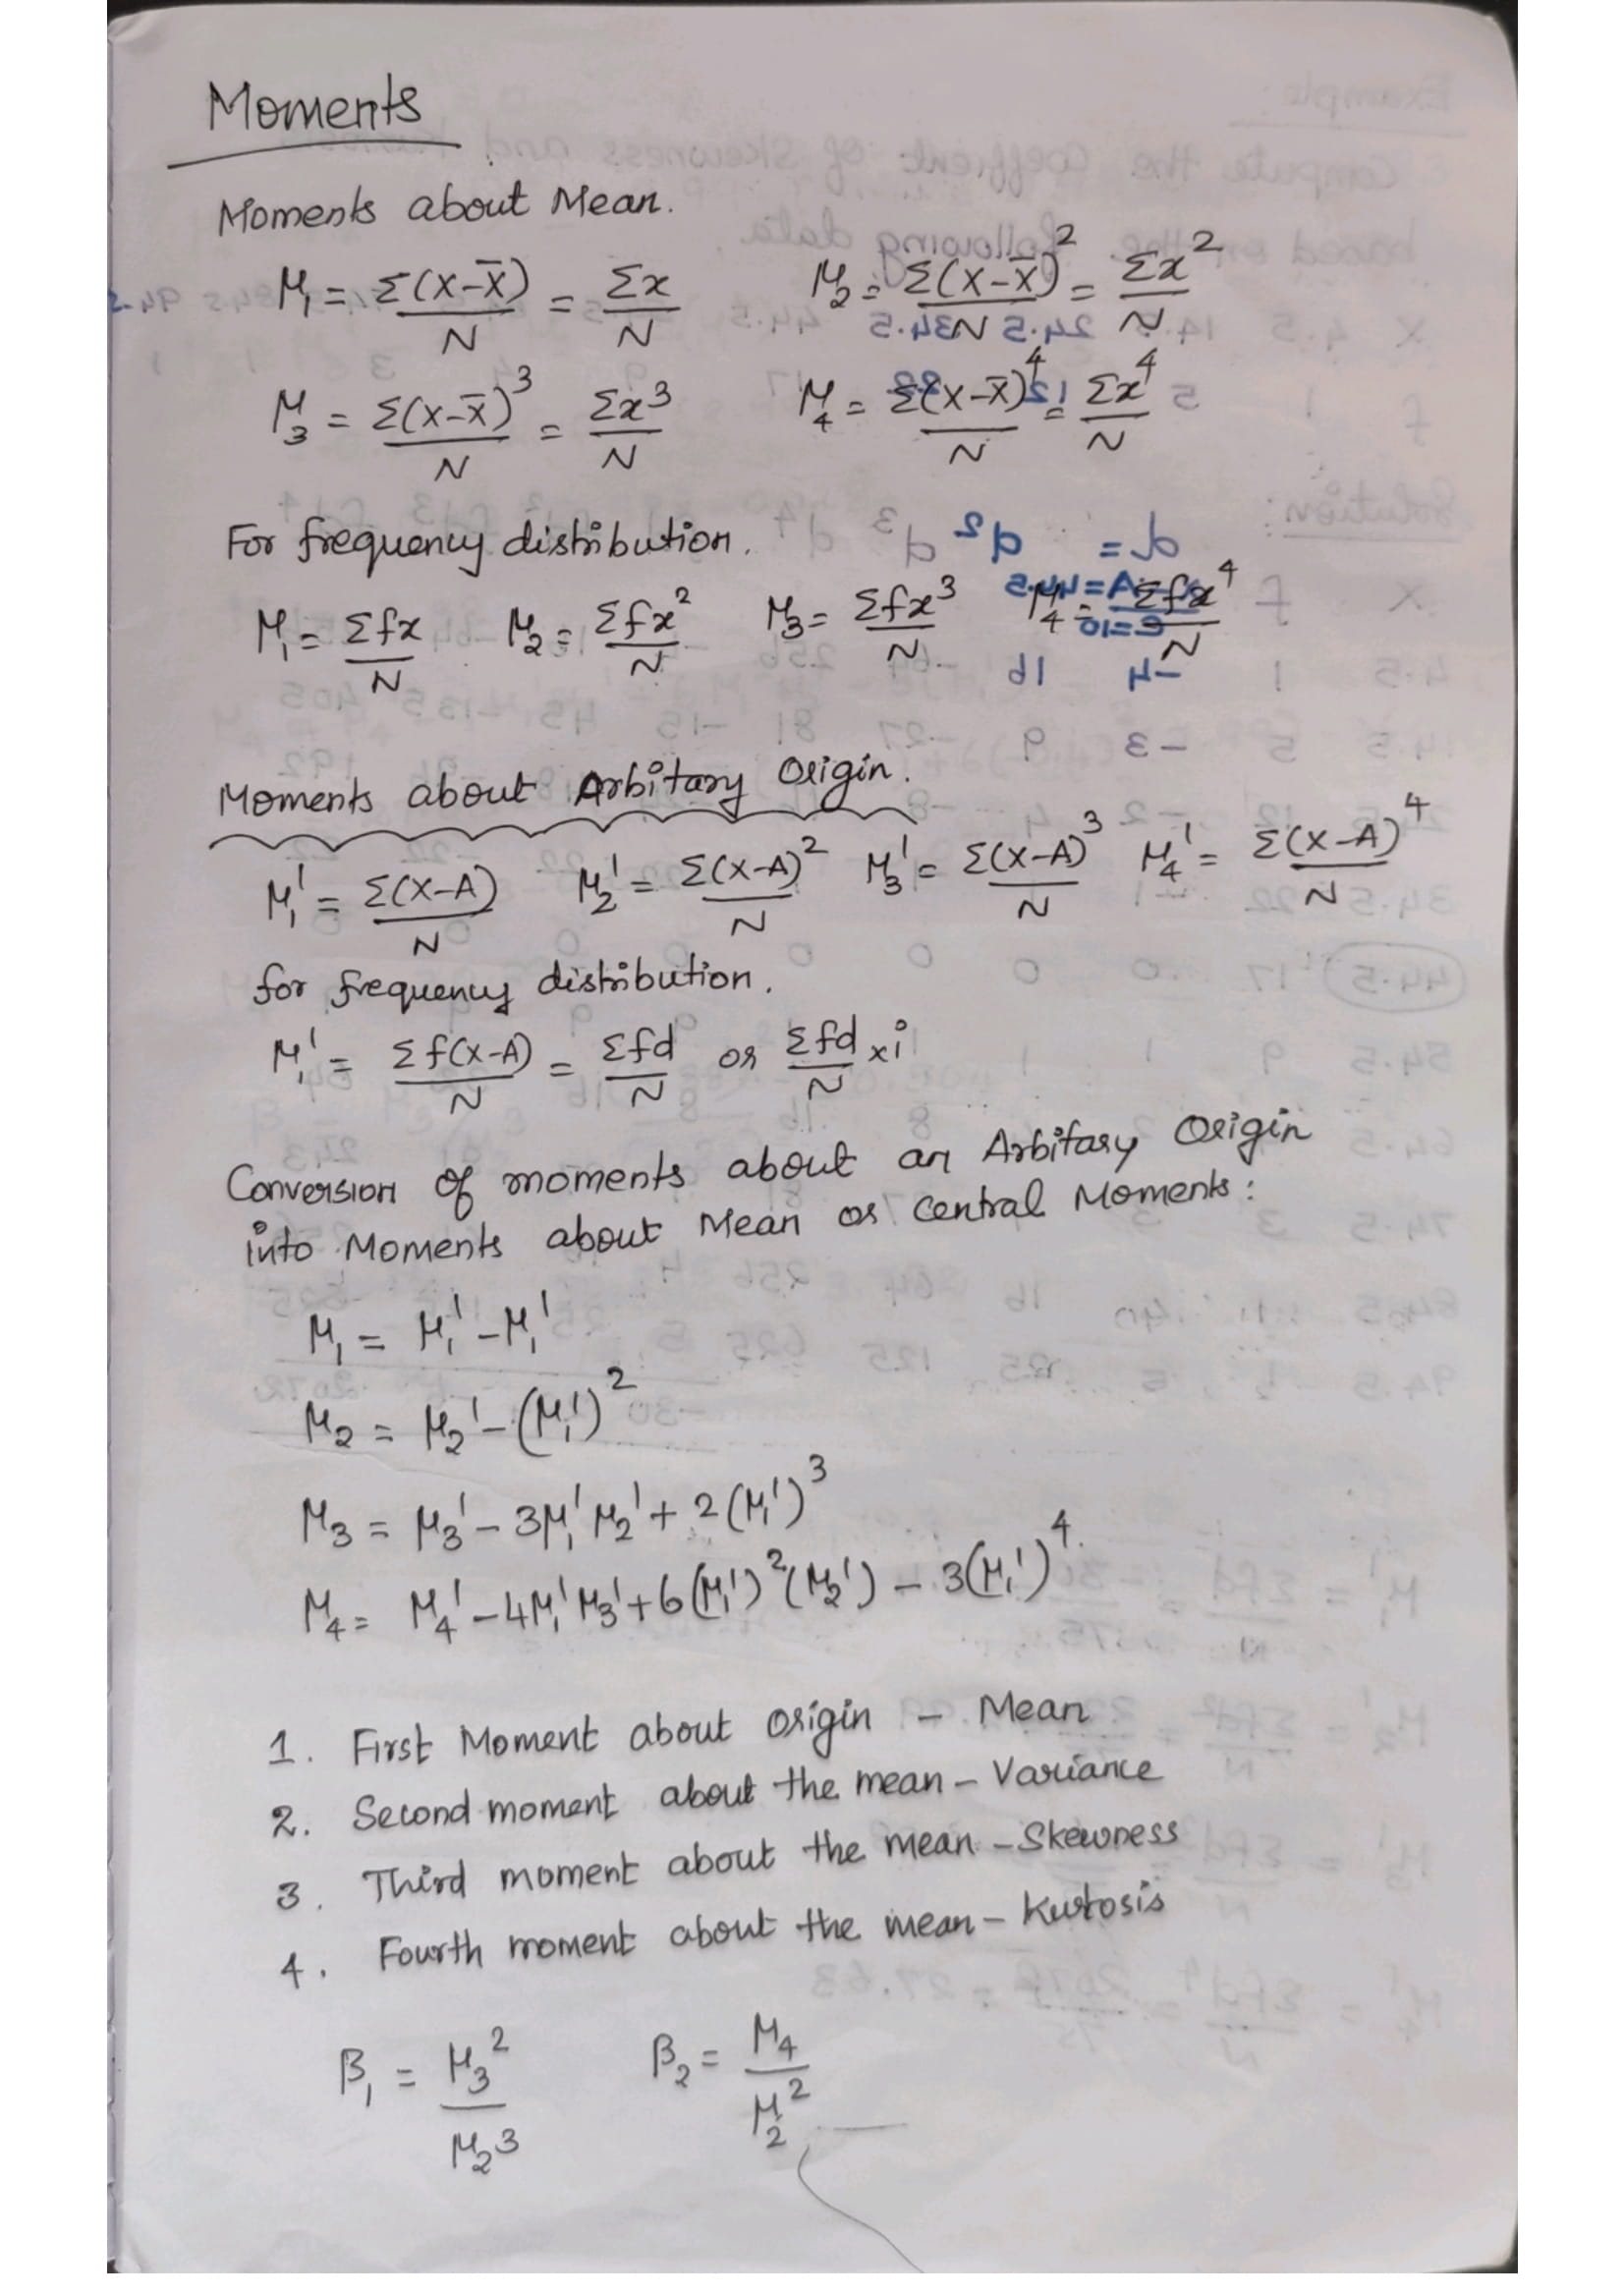 Moments
Moments about Mean.
μ₁ = Σ(X-X̄)/N = Σx/N    μ₂ = Σ(X-X̄)²/N = Σx²/N
μ₃ = Σ(X-X̄)³/N = Σx³/N    μ₄ = Σ(X-X̄)⁴/N = Σx⁴/N
For frequency distribution.
μ₁ = Σfx/N    μ₂ = Σfx²/N    μ₃ = Σfx³/N    μ₄ = Σfx⁴/N
Moments about Arbitary Origin.
μ₁' = Σ(X-A)/N    μ₂' = Σ(X-A)²/N    μ₃' = Σ(X-A)³/N    μ₄' = Σ(X-A)⁴/N
for frequency distribution.
μ₁' = Σf(X-A)/N = Σfd/N or Σfd/N × i
Conversion of moments about an Arbitary Origin
into Moments about Mean or Central Moments:
μ₁ = μ₁' - μ₁'
μ₂ = μ₂' - (μ₁')²
μ₃ = μ₃' - 3μ₁'μ₂' + 2(μ₁')³
μ₄ = μ₄' - 4μ₁'μ₃' + 6(μ₁')²(μ₂') - 3(μ₁')⁴.
1. First Moment about origin - Mean
2. Second moment about the mean - Variance
3. Third moment about the mean - Skewness
4. Fourth moment about the mean - Kurtosis
β₁ = μ₃²/μ₂³    β₂ = μ₄/μ₂²